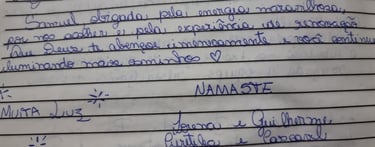 Samuel obrigada pela energia maravilhosa,
por nos acolher e pela experiência de renovação
Que Deus te abençoe imensamente e você continue
iluminando mais caminhos ♡
NAMASTE
MUITA LUZ
Lorena e Guilherme
Curitiba e Cascavel